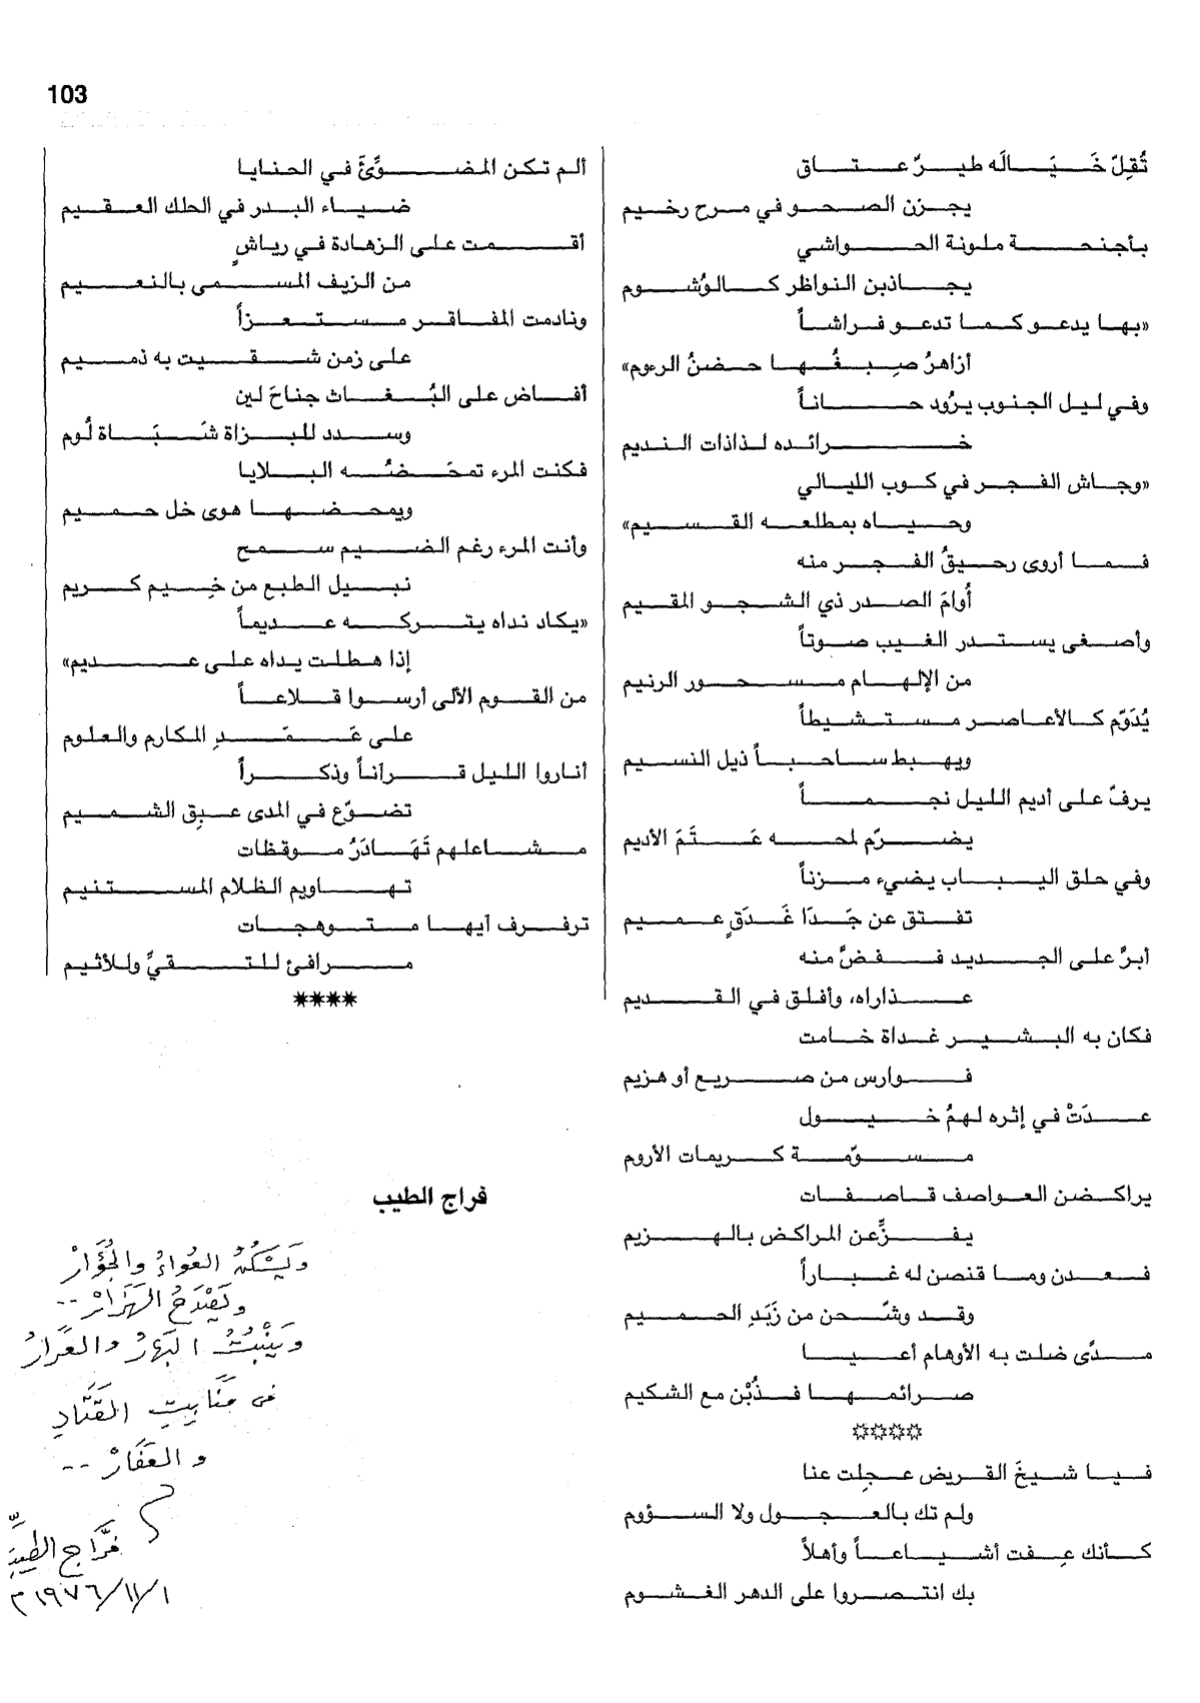 103
تُقِلّ خَيَالَه طيرٌ عتاق
يجزن الصحو في مرح رخيم
بأجنحة ملونة الحواشي
يجاذبن النواظر كالوُشوم
«بها يدعو كما تدعو فراشاً
أزاهرُ صِبغُها حضنُ الرءوم»
وفي ليل الجنوب يرُود حاناً
خرائده لذاذات النديم
«وجاش الفجر في كوب الليالي
وحياه بمطلعه القسيم»
فما أروى رحيقُ الفجر منه
أُوامَ الصدر ذي الشجو المقيم
وأصغى يستدر الغيب صوتاً
من الإلهام مسحور الرنيم
يُدَوّم كالأعاصر مستشيطاً
ويهبط ساحباً ذيل النسيم
يرفّ على أديم الليل نجماً
يضرّم لمحه عَتَمَ الأديم
وفي حلق اليباب يضيء مزناً
تفتق عن جَدَا غَدَقٍ عميم
أبرَّ على الجديد ففضَّ منه
عذاراه، وأفلق في القديم
فكان به البشير غداة خامت
فوارس من صريع أو هزيم
عدَتْ في إثره لهمُ خيول
مسوّمة كريمات الأروم
يراكضن العواصف قاصفات
يفزِّعن المراكض بالهزيم
فعدن وما قنصن له غباراً
وقد وشّحن من زَبَدِ الحميم
مدًى ضلت به الأوهام أعيا
صرائمها فذُبْن مع الشكيم
✲✲✲✲
فيا شيخَ القريض عجِلت عنا
ولم تك بالعجول ولا السؤوم
كأنك عِفت أشياعاً وأهلاً
بك انتصروا على الدهر الغشوم
ألم تكن المضوِّئَ في الحنايا
ضياء البدر في الحلك العقيم
أقمت على الزهادة في رياشٍ
من الزيف المسمى بالنعيم
ونادمت المفاقر مستعزاً
على زمن شقيت به ذميم
أفاض على البُغاث جناحَ لين
وسدد للبزاة شَبَاة لُوم
فكنت المرء تمحَضُه البلايا
ويمحضها هوى خل حميم
وأنت المرء رغم الضيم سمح
نبيل الطبع من خِيم كريم
«يكاد نداه يتركه عديماً
إذا هطلت يداه على عديم»
من القوم الألى أرسوا قلاعاً
على عَمَدِ المكارم والعلوم
أناروا الليل قرآناً وذكراً
تضوّع في المدى عبِق الشميم
مشاعلهم تَهَادَرُ موقظات
تهاويم الظلام المستنيم
ترفرف أيها متوهجات
مرافئ للتقيِّ وللأثيم
✷✷✷✷
فراج الطيب
وَيَسْكُتُ العُواءُ والجُؤَارْ
وَيَصْدَحُ الهَزَارْ --
وَيَنْبُتُ البَهَارُ والعَرَارُ
في مَنَابِتِ القَتَادِ
والعَفَارْ --
فرَّاج الطيِّب
١/١١/١٩٧٦ م